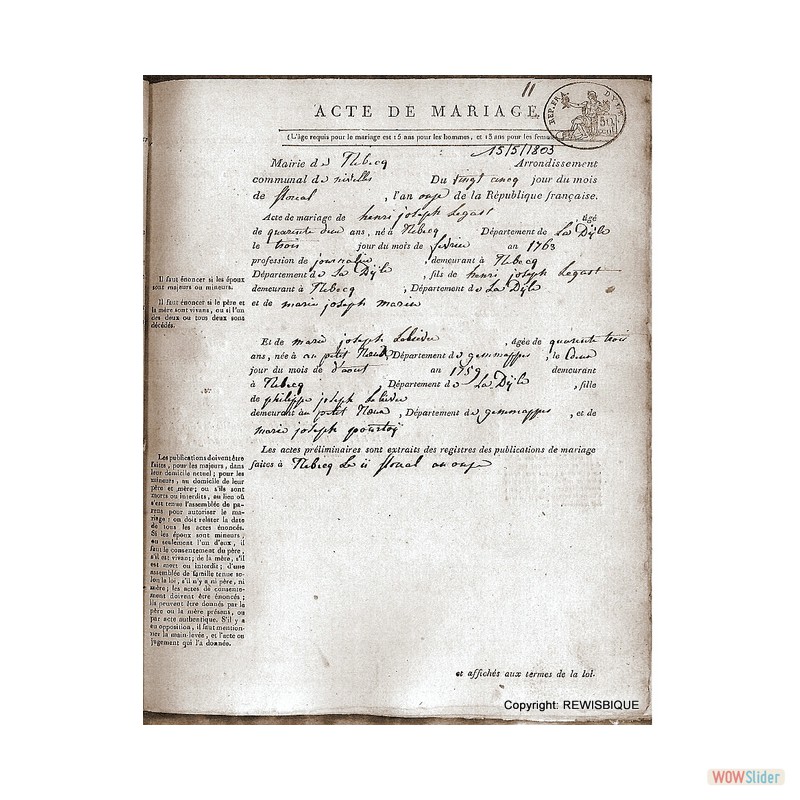 11
ACTE DE MARIAGE
REP. FRA
(L'âge requis pour le mariage est 15 ans pour les hommes, et 13 ans pour les femmes
15/5/1803
Mairie de Rebecq Arrondissement
communal de nivelles Du vingt cincq jour du mois
de floreal , l'an onze de la République française.
Acte de mariage de henri joseph Legast , âgé
de quarente deux ans, né à Rebecq Département de La Dÿle
le trois jour du mois de fevrier an 1763
profession de journalier , demeurant à Rebecq
Département de La Dÿle , fils de henri joseph Legast
demeurant à Rebecq , Département de La Dÿle
et de marie joseph
Il faut énoncer si les époux
sont majeurs ou mineurs.
Il faut énoncer si le père et
la mère sont vivans, ou si l'un
des deux ou tous deux sont
décédés.
Et de marie joseph , âgée de quarente trois
ans, née à au petit Département de gemmappes , le
jour du mois d'aout an 1759 demeurant
à Rebecq , Département de La Dÿle , fille
de philippe joseph
demeurant au petit , Département de gemmappes , et de
marie joseph
Les actes préliminaires sont extraits des registres des publications de mariage
faites à Rebecq Le ii floreal an onze
Les publications doivent être
faites, pour les majeurs, dans
leur domicile actuel; pour les
mineurs, au domicile de leur
père et mère; ou s'ils sont
morts ou interdits, au lieu où
s'est tenue l'assemblée de pa-
rens pour autoriser le ma-
riage: on doit relater la date
de tous les actes énoncés.
Si les époux sont mineurs,
ou seulement l'un d'eux, il
faut le consentement du père,
s'il est vivant; de la mère, s'il
est mort ou interdit; d'une
assemblée de famille tenue se-
lon la loi, s'il n'y a ni père, ni
mère; les actes de consente-
ment doivent être énoncés;
ils peuvent être donnés par le
père ou la mère présens, ou
par acte authentique. S'il y a
eu opposition, il faut mention-
ner la main-levée, et l'acte ou
jugement qui l'a donnée.
et affichés aux termes de la loi.
Copyright: REWISBIQUE
WOWSlider